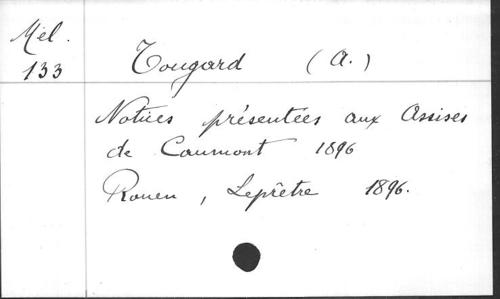 Mél.
133
Tougard (A.)
Notices présentées aux Assises
de Caumont 1896
Rouen, Leprêtre 1896.